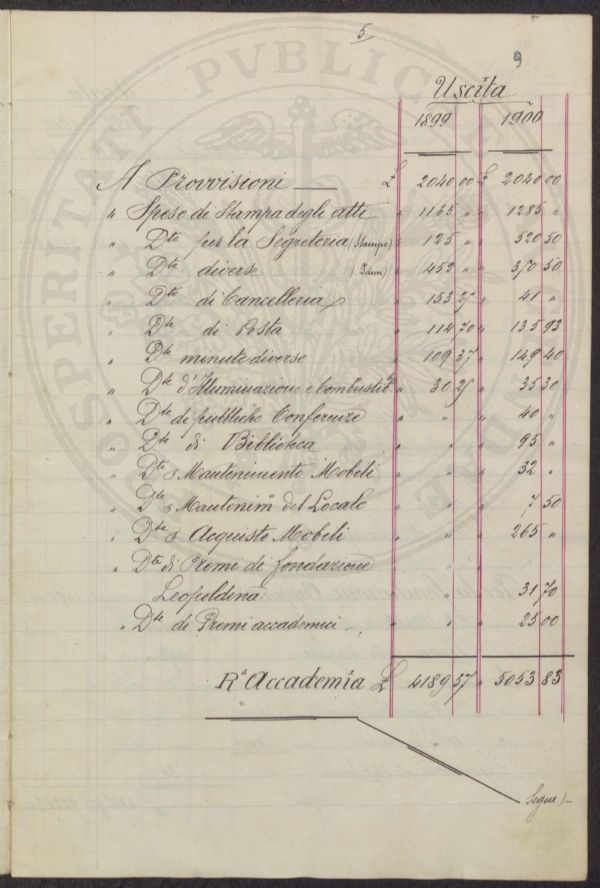 5
9
Uscita
1899 1900
A Provvisioni — £ 2040 00 £ 2040 00
" Spese di Stampa degli atti " 1165 " " 1285 "
" Dte per la Segreteria (Stampe) " 125 " " 520 50
" Dte diverse (Idem) " 452 " " 370 50
" Dte di Cancelleria " 153 25 " 41 "
" Dte di Posta " 114 70 " 135 93
" Dte minute diverse " 109 37 " 149 40
" Dte d'Illuminazione e Combustibe " 30 25 " 35 30
" Dte di pubbliche Conferenze " " " 40 "
" Dte di Biblioteca " " " 95 "
" Dte Mantenimento Mobili " " " 32 "
" Dte Mantenimo del Locale " " " 7 50
" Dte Acquisto Mobili " " " 265 "
" Dte di Premi di fondazione " "
Leopoldina " " 31 70
" Dte di Premi accademici " " 25 00
Ra Accademia £ 4189 57 " 5053 83
Segue)